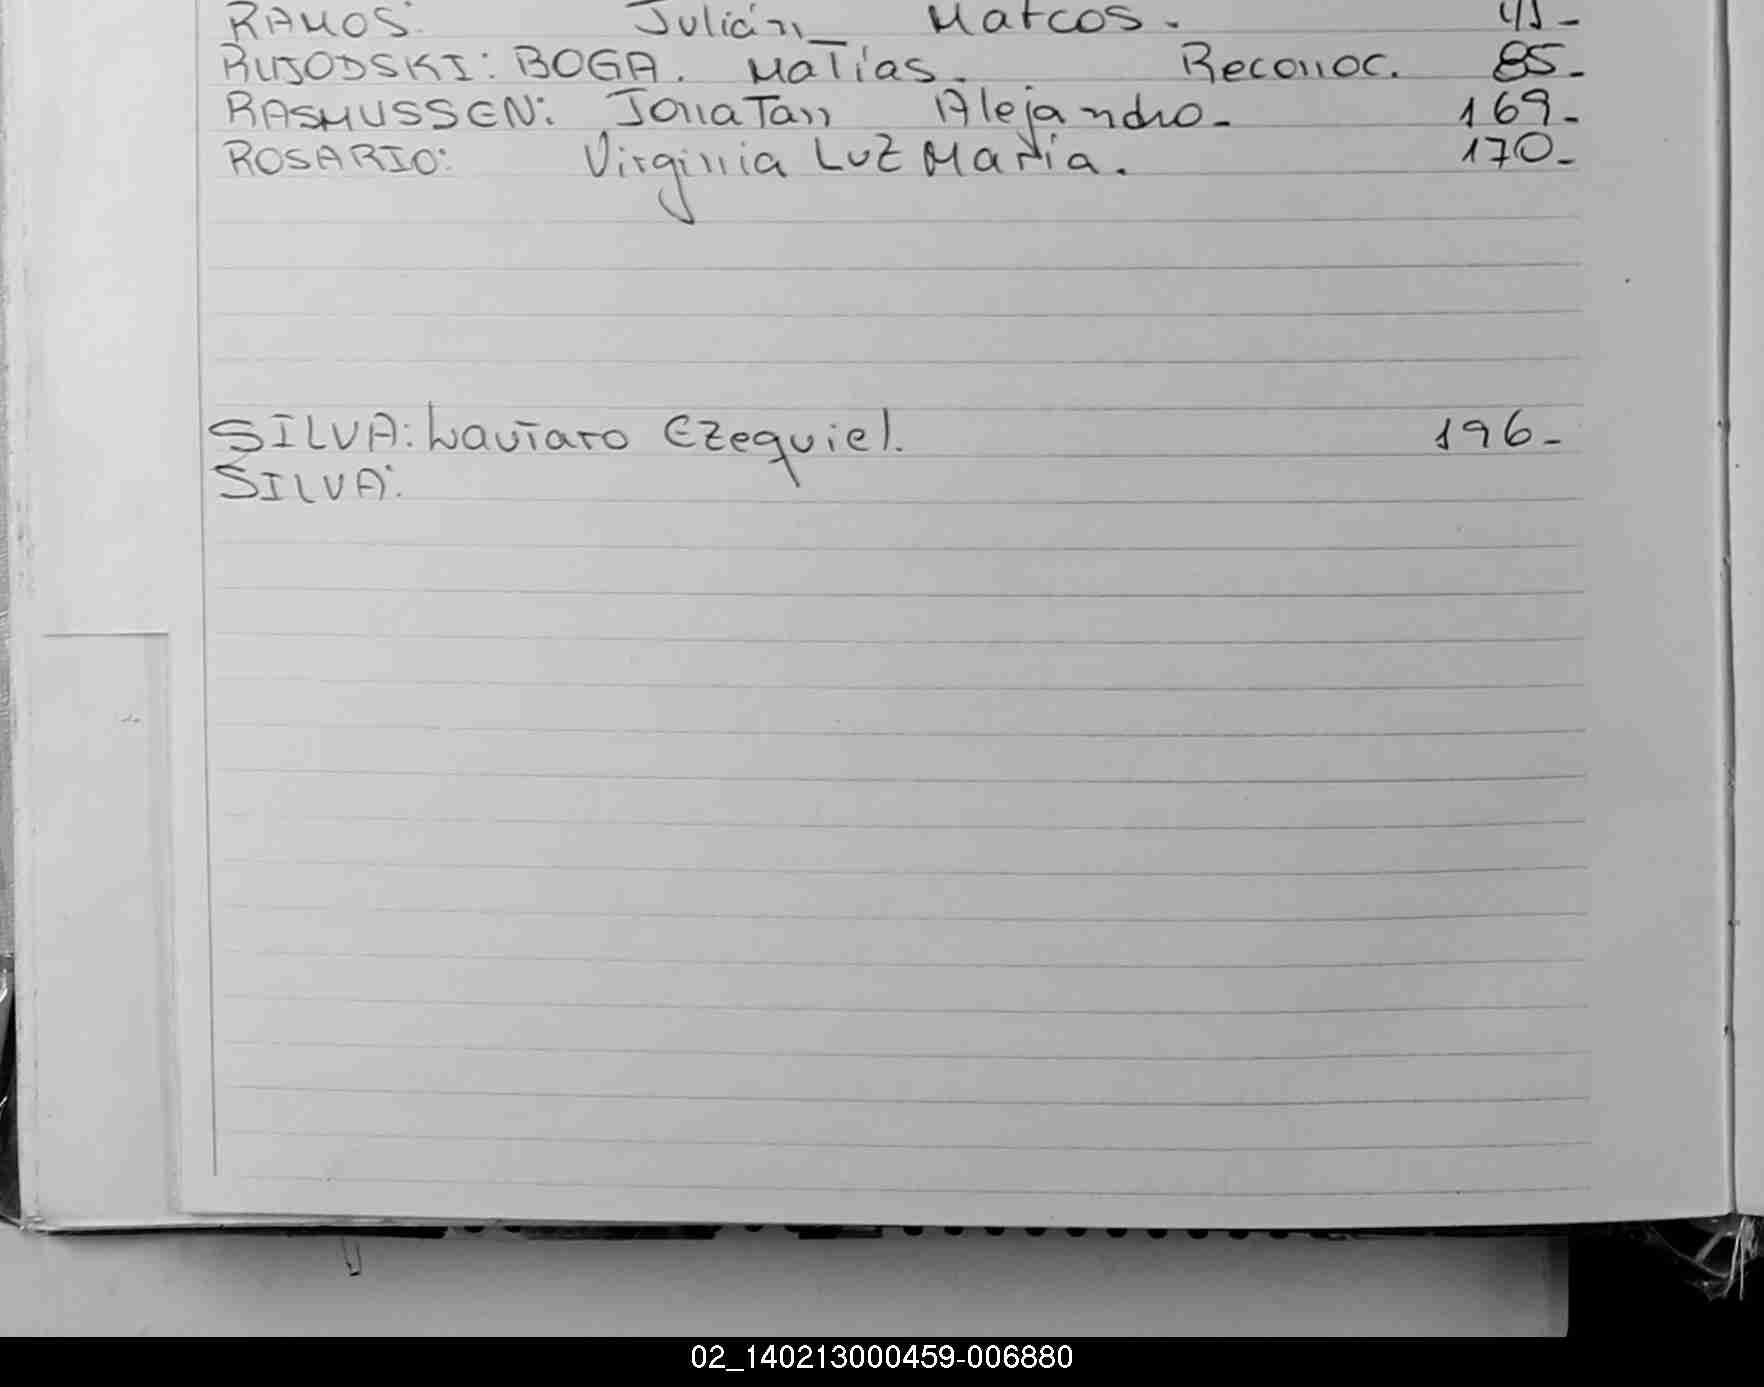 RAMOS: Julián Marcos.
RUJODSKI: BOGA. Matías. Reconoc. 85-
RASMUSSEN: Jonatan Alejandro- 169-
ROSARIO: Virginia Luz María. 170-
SILVA: Lautaro Ezequiel. 196-
SILVA:
02_140213000459-006880